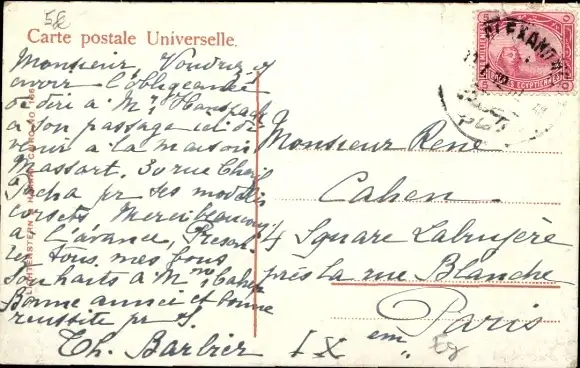 Carte postale Universelle.
Monsieur, Voudriez
avoir l'obligeance
de dire à Mr
à son passage ici de
venir à la maison
Massart, 30 rue Chérif
Pacha pr ses modèles
corsets, Merci beaucoup
à l'avance, Présen-
tez tous mes bons
souhaits à Mme Cahen
Bonne année et bonne
réussite pr
Th. Barbier
Monsieur René
Cahen
4 Square Labruyère
près la rue Blanche
Paris
IX em
LICHTENSTERN & HARARI, CAIRO
ALEXAND
5